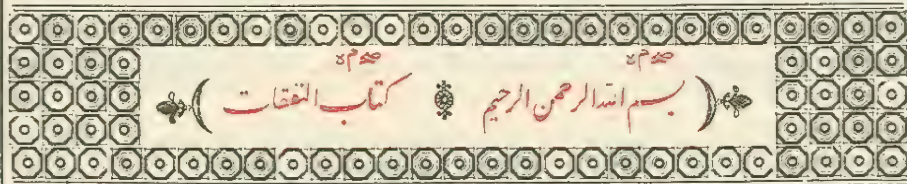 بسم الله الرحمن الرحيم كتاب النفقات